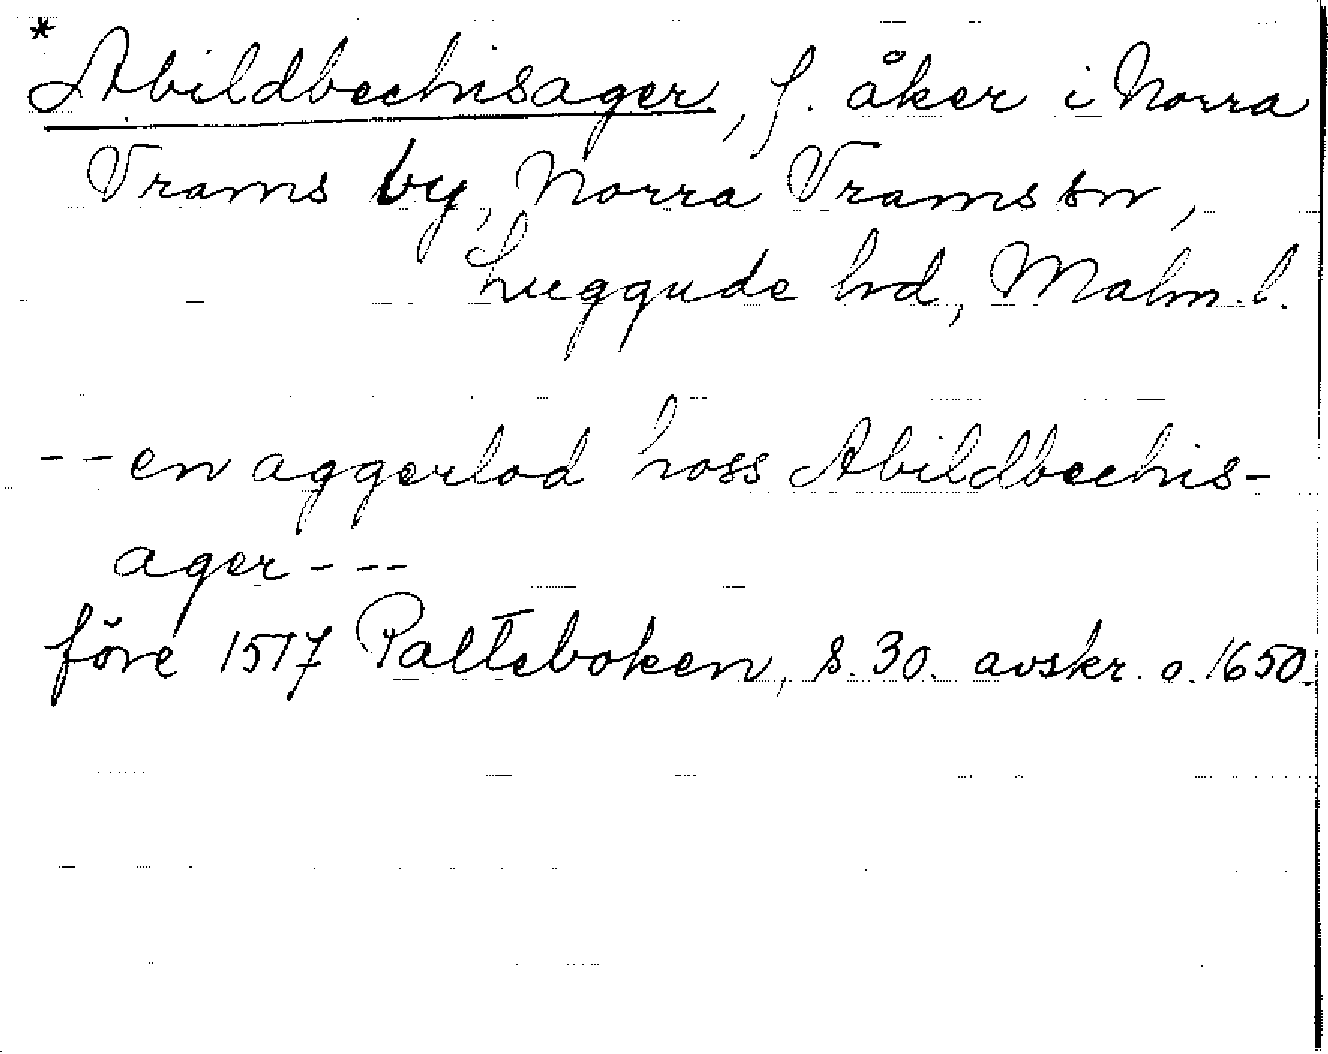 *
Abildbechisager, f. åker i Norra
Vrams by, Norra Vrams sn,
Luggude hd, Malm. l.
-- en aggerlod hoss Abildbechis-
ager ---
före 1517 Palteboken, s. 30. avskr. o. 1650.